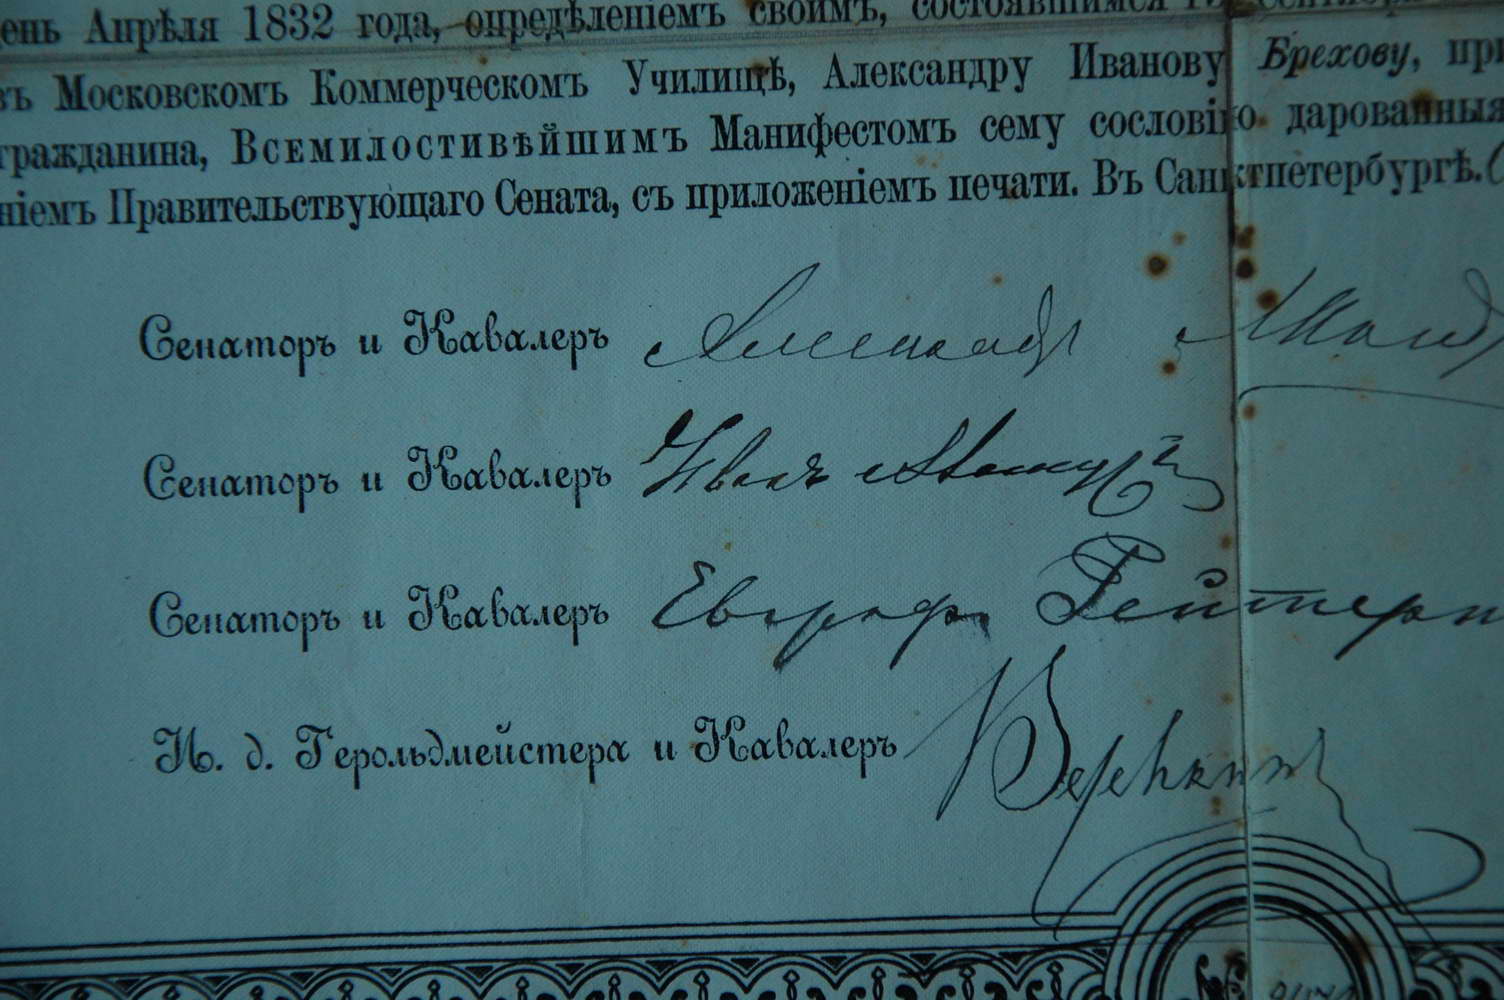 день Апрѣля 1832 года, опредѣленіемъ своимъ, состоявшимся
въ Московскомъ Коммерческомъ Училищѣ, Александру Иванову Брехову, при
гражданина, Всемилостивѣйшимъ Манифестомъ сему сословію дарованныя
ніемъ Правительствующаго Сената, съ приложеніемъ печати. Въ Санктпетербургѣ.
Сенаторъ и Кавалеръ Александр
Сенаторъ и Кавалеръ Иванъ
Сенаторъ и Кавалеръ Евграф Рейтерн
И. д. Герольдмейстера и Кавалеръ